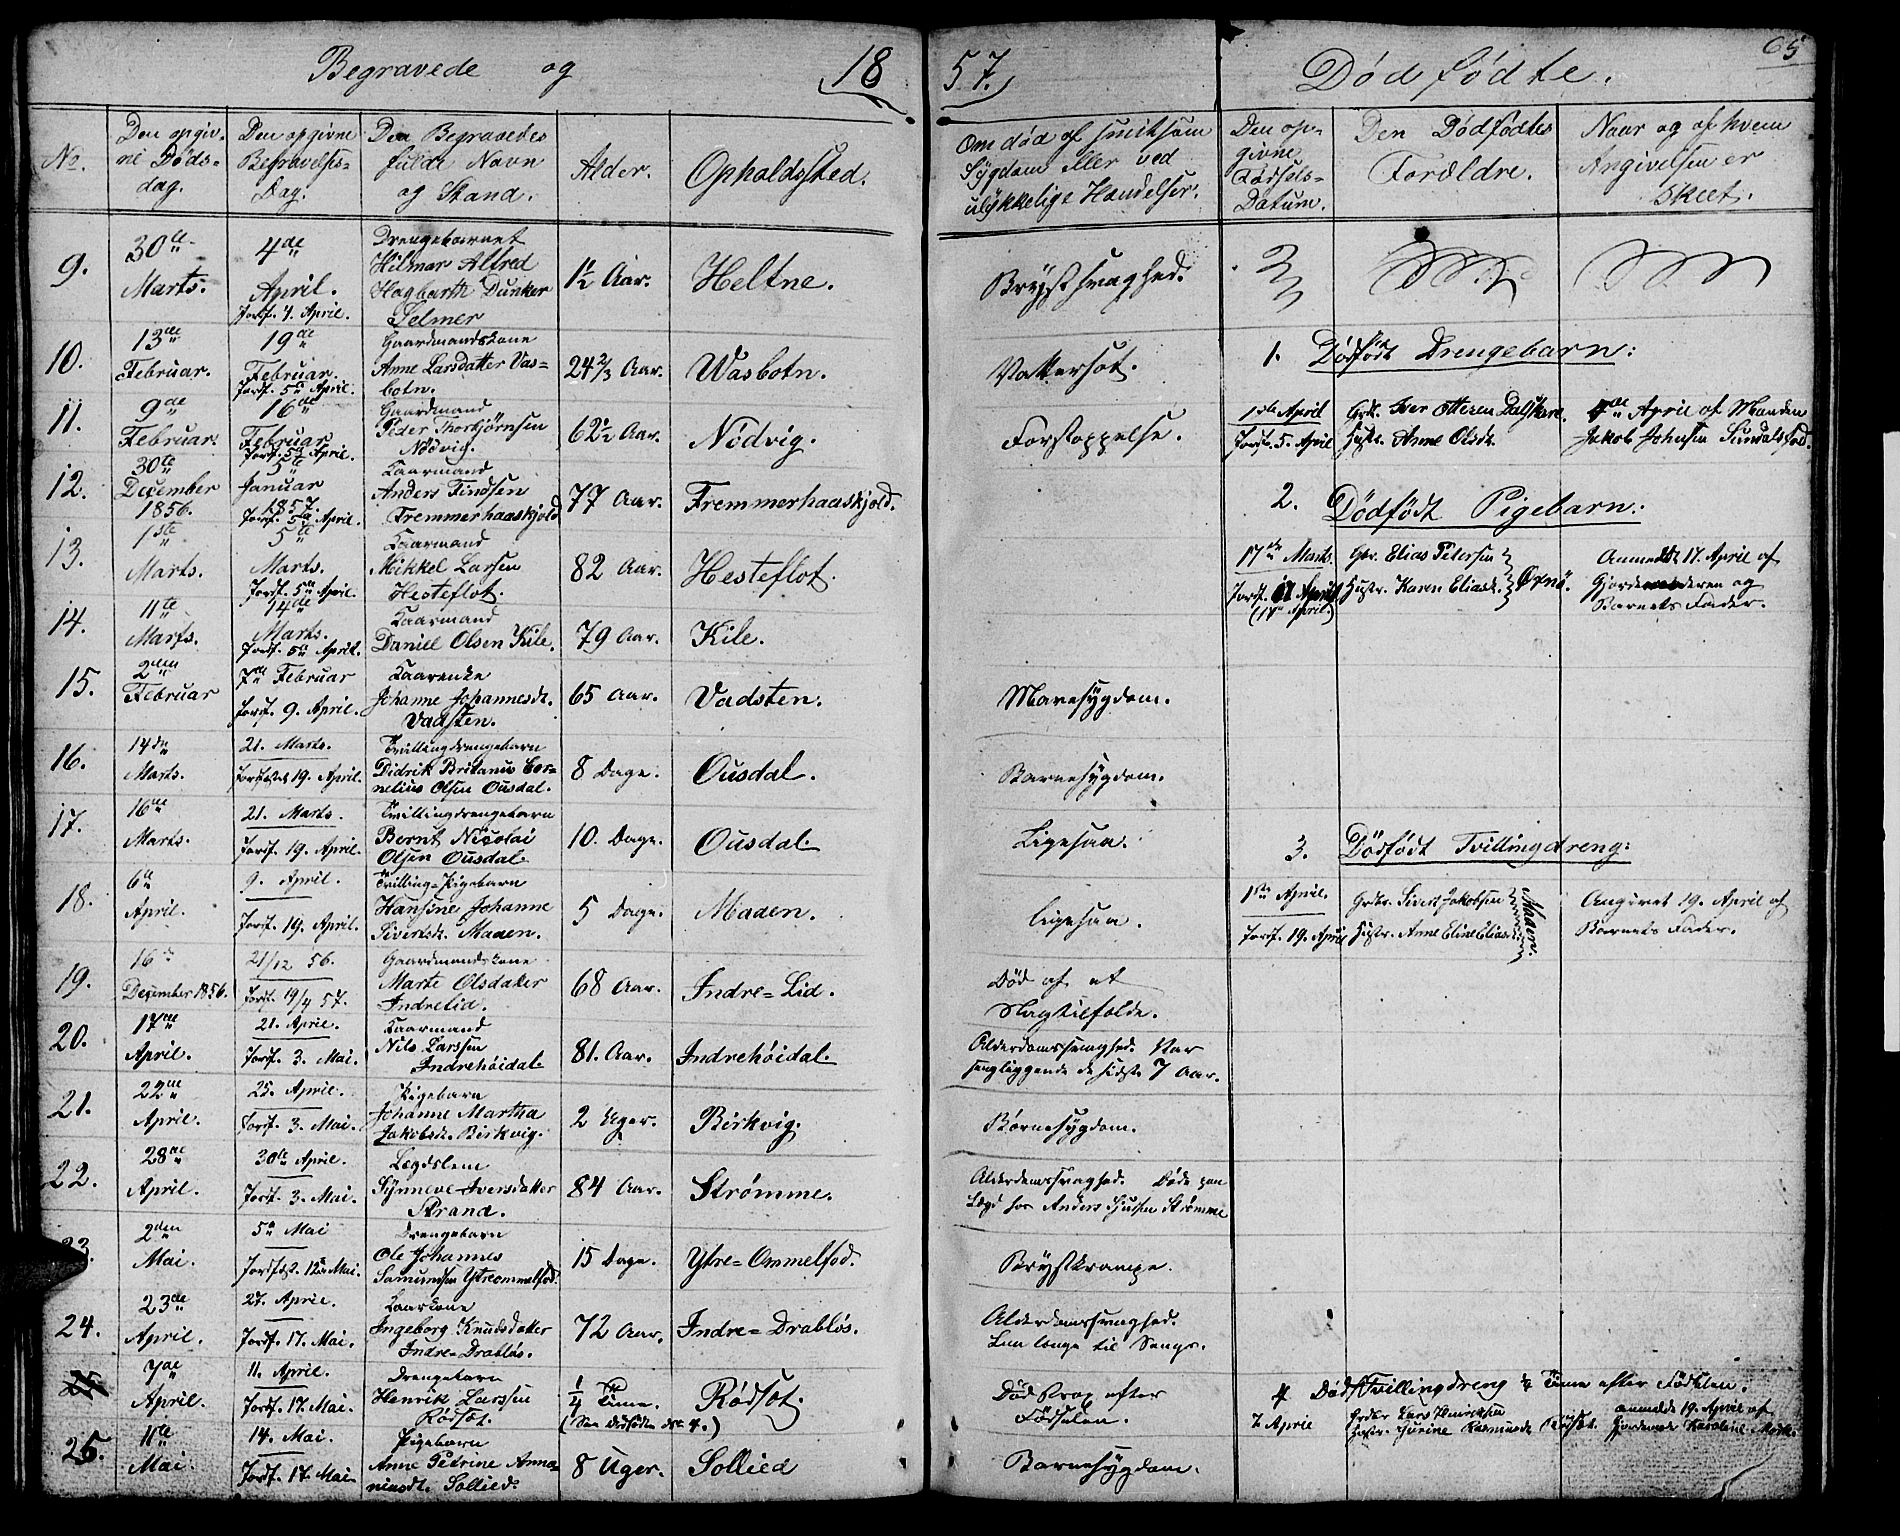 Begravede og 1857. Dødfødte.
65
No.
Den opgivne Dødsdag.
Den opgivne Begravelses-Dag.
Den Begravedes fulde Navn og Stand.
Alder.
Opholdssted.
Om død af smitsom Sygdom eller ved ulykkelige Hændelser.
Den opgivne Fødsels-Datum.
Den Dødfødtes Forældre.
Naar og af hvem Angivelsen er skeet.
9.
30te Marts.
4de April.
Jordf. 4. April.
Drengebarnet
Hilmar Alfred
Hagbarth Dunker
Selmer
1½ Aar.
Heltne.
Brystsvaghed.
10.
13de Februar.
19de Februar.
Jordf. 5te April.
Gaardmandskone
Anne Larsdatter Vas-
botn.
24⅔ Aar.
Wasbotn.
Vattersot.
11.
9de Februar.
16de Februar
Jordf. 5te April.
Gaardmand
Peder Thorbjørnsen
Nödvig.
62½ Aar.
Nödvig.
Forstoppelse.
12.
30te December 1856.
5te Januar 1857.
Jordf. 5te April.
Kaarmand
Anders Findsen
Fremmerhaaskjold
77 Aar.
Fremmerhaaskjold.
13.
1ste Marts.
5te Marts.
Jordf. 5te April.
Kaarmand
Mikkel Larsen
Hesteflot.
82 Aar.
Hesteflot.
14.
11te Marts.
14de Marts.
Jordf. 5te April.
Kaarmand
Daniel Olsen Kile.
79 Aar.
Kile.
15.
2den Februar
7de Februar
Jordf. 9. April.
Kaarenke
Johanne Johannesdt.
Vadsten.
65 Aar.
Vadsten.
Mavesygdom.
16.
14de Marts.
21. Marts.
Jordfæstet 19. April.
Tvillingdrengebarn
Didrik Britanus Cor-
nelius Olsen Ousdal.
8 Dage.
Ousdal.
Barnesygdom.
17.
16de Marts.
21. Marts.
Jordf. 19. April.
Tvillingdrengebarn
Bernt Nicolai
Olsen Ousdal.
10. Dage.
Ousdal.
Ligesaa.
18.
6te April.
9. April.
Jordf. 19. April.
Tvilling-Pigebarn
Hansine Johanne
Sivertsdt. Maden.
5 Dage.
Maden.
Ligesaa.
19.
16de December 1856.
21/12 56.
Jordf. 19/4 57.
Gaardmandskone
Marte Olsdatter
Indrelid.
68 Aar.
Indre=Lid.
Död af et
Slagtilfælde.
20.
17de April.
21. April.
Jordf. 3. Mai.
Kaarmand
Nils Larssen
Indrehöidal.
81. Aar.
Indrehöidal.
Alderdomssvaghed. Var
sengliggende de sidste 7 Aar.
21.
22de April.
25. April.
Jordf. 3. Mai.
Pigebarn
Johanne Martha
Jakobsdt. Birkvig.
2 Uger.
Birkvig.
Börnesygdom.
22.
28de April.
30te April.
Jordf. 3. Mai.
Lægdslem
Synneve Iversdatter
Strand.
84 Aar.
Strømme.
Alderdomssvaghed. Døde paa
Lægd hos Anders Strømme
23.
2den Mai.
5te Mai
Jordfæst. 12te Mai.
Drengebarn
Ole Johannes
Samundsen Ytreommelfod.
15 Dage.
Ytre=Ommelfod.
Brystkrampe.
24.
23de April.
27. April.
Jordf. 17. Mai.
Kaarkone
Ingeborg Knudsdatter
Indre=Drabløs.
72 Aar.
Indre=Drabløs.
Alderdomssvaghed.
Laa længe til Sengs.
25.
7de April.
11. April.
Jordf. 17. Mai.
Drengebarn
Henrik Larssen
Rödsæt.
¼ Time.
(See Dødfödte No. 4.)
Rödsæt.
Död strax efter
Fødselen.
25.
11te Mai.
14. Mai.
Jordf. 17. Mai
Pigebarn
Anne Petrine Anna-
niasdt. Sollied.
8 Uger.
Sollied
Barnesygdom.
1. Dødfødt Drengebarn:
1ste April
Jordf. 5. April
Grdb. Iver Ottesen Dalskare.
Hustr. Anne Olsdt.
April af Manden
Jakob Johnsen Sundalsfod.
2. Dødfödt Pigebarn:
17de Marts.
Jordf. April
(17de April)
Gbr. Elias Petersen
Hustr. Karen Eliasdt.
Oxnö.
Anmeldt 17. April af
Gjordemoderen og
Barnets Fader.
3. Dödfödt Tvillingdreng:
1ste April.
Jordf. 19. April
Grdbr. Sivert Jakobsen
Hustr. Anne Eline Eliasdt.
Maden.
Angivet 19. April af
Barnets Fader.
4 Död Tvillingdreng ¼ Time efter Födslen.
7. April
Grdbr Lars Henriksen
Hustr. Gurine Rasmusdt Rödsæt.
anmeldt 19. April af
Gjordemoder Karoline Mork.